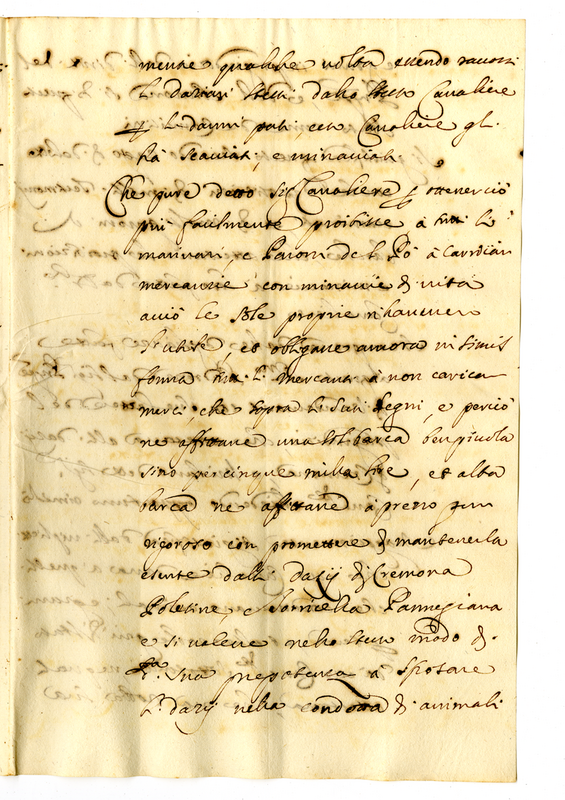 mente qualche volta essendo racorsi
li daziari stessi dallo stesso Cavaliere
li danni patiti Cavaliere gl'
hà scaciati, e minaciati
Che pure detto Sig.r Cavaliere p ottenerciò
piu facilmente proibisce à tutti li
marinari, e Paroni del Pò à
mercanzie con minaccie di vita
acciò le sole proprie
, et obligare ancora in simil
forma tutti li mercanti à non caricar
merci, che sopra li suoi legni, e perciò
ne affittare una sol barca ben picciola
sino per cinque mille lire, et altra
barca ne affittare à prezzo piu
rigoroso con promettere di mantenerla
esente dalli dazij di Cremona
Poletine, e Torricella Parmegiana
e si valere nello stesso modo di
sua prepotenza à
li dazij nella condotta di animali